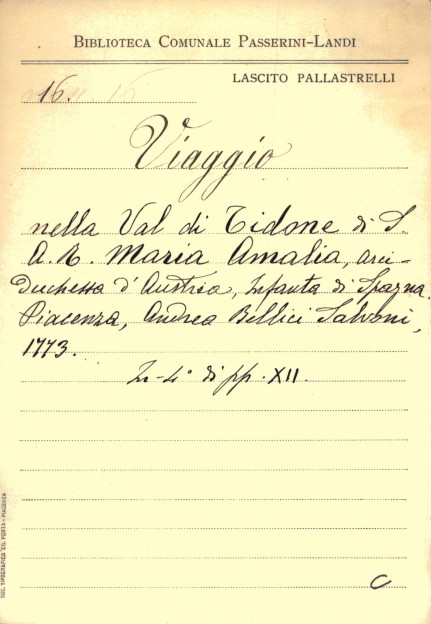 BIBLIOTECA COMUNALE PASSERINI-LANDI
LASCITO PALLASTRELLI
16.
Viaggio
nella Val di Tidone di S.
A. R. Maria Amalia, arci-
duchessa d'Austria, Infanta di Spagna.
Piacenza, Andrea Bellici Salvoni,
1773.
In-4° di pp. XII.
C
SOC. TIPOGRAFICA ED. PORTA - PIACENZA